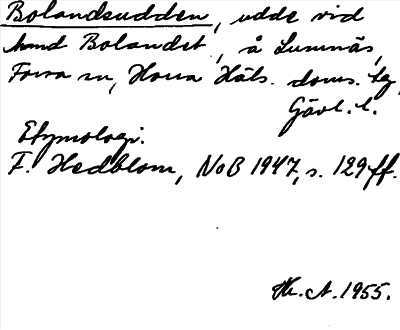 Bolandsudden, udde vid
land Bolandet, å Lumnäs,
Forsa sn, Norra Häls. doms. lg,
Gävl. l.
Etymologi.
F. Hedblom, NoB 1947, s. 129 ff.
A. 1955.